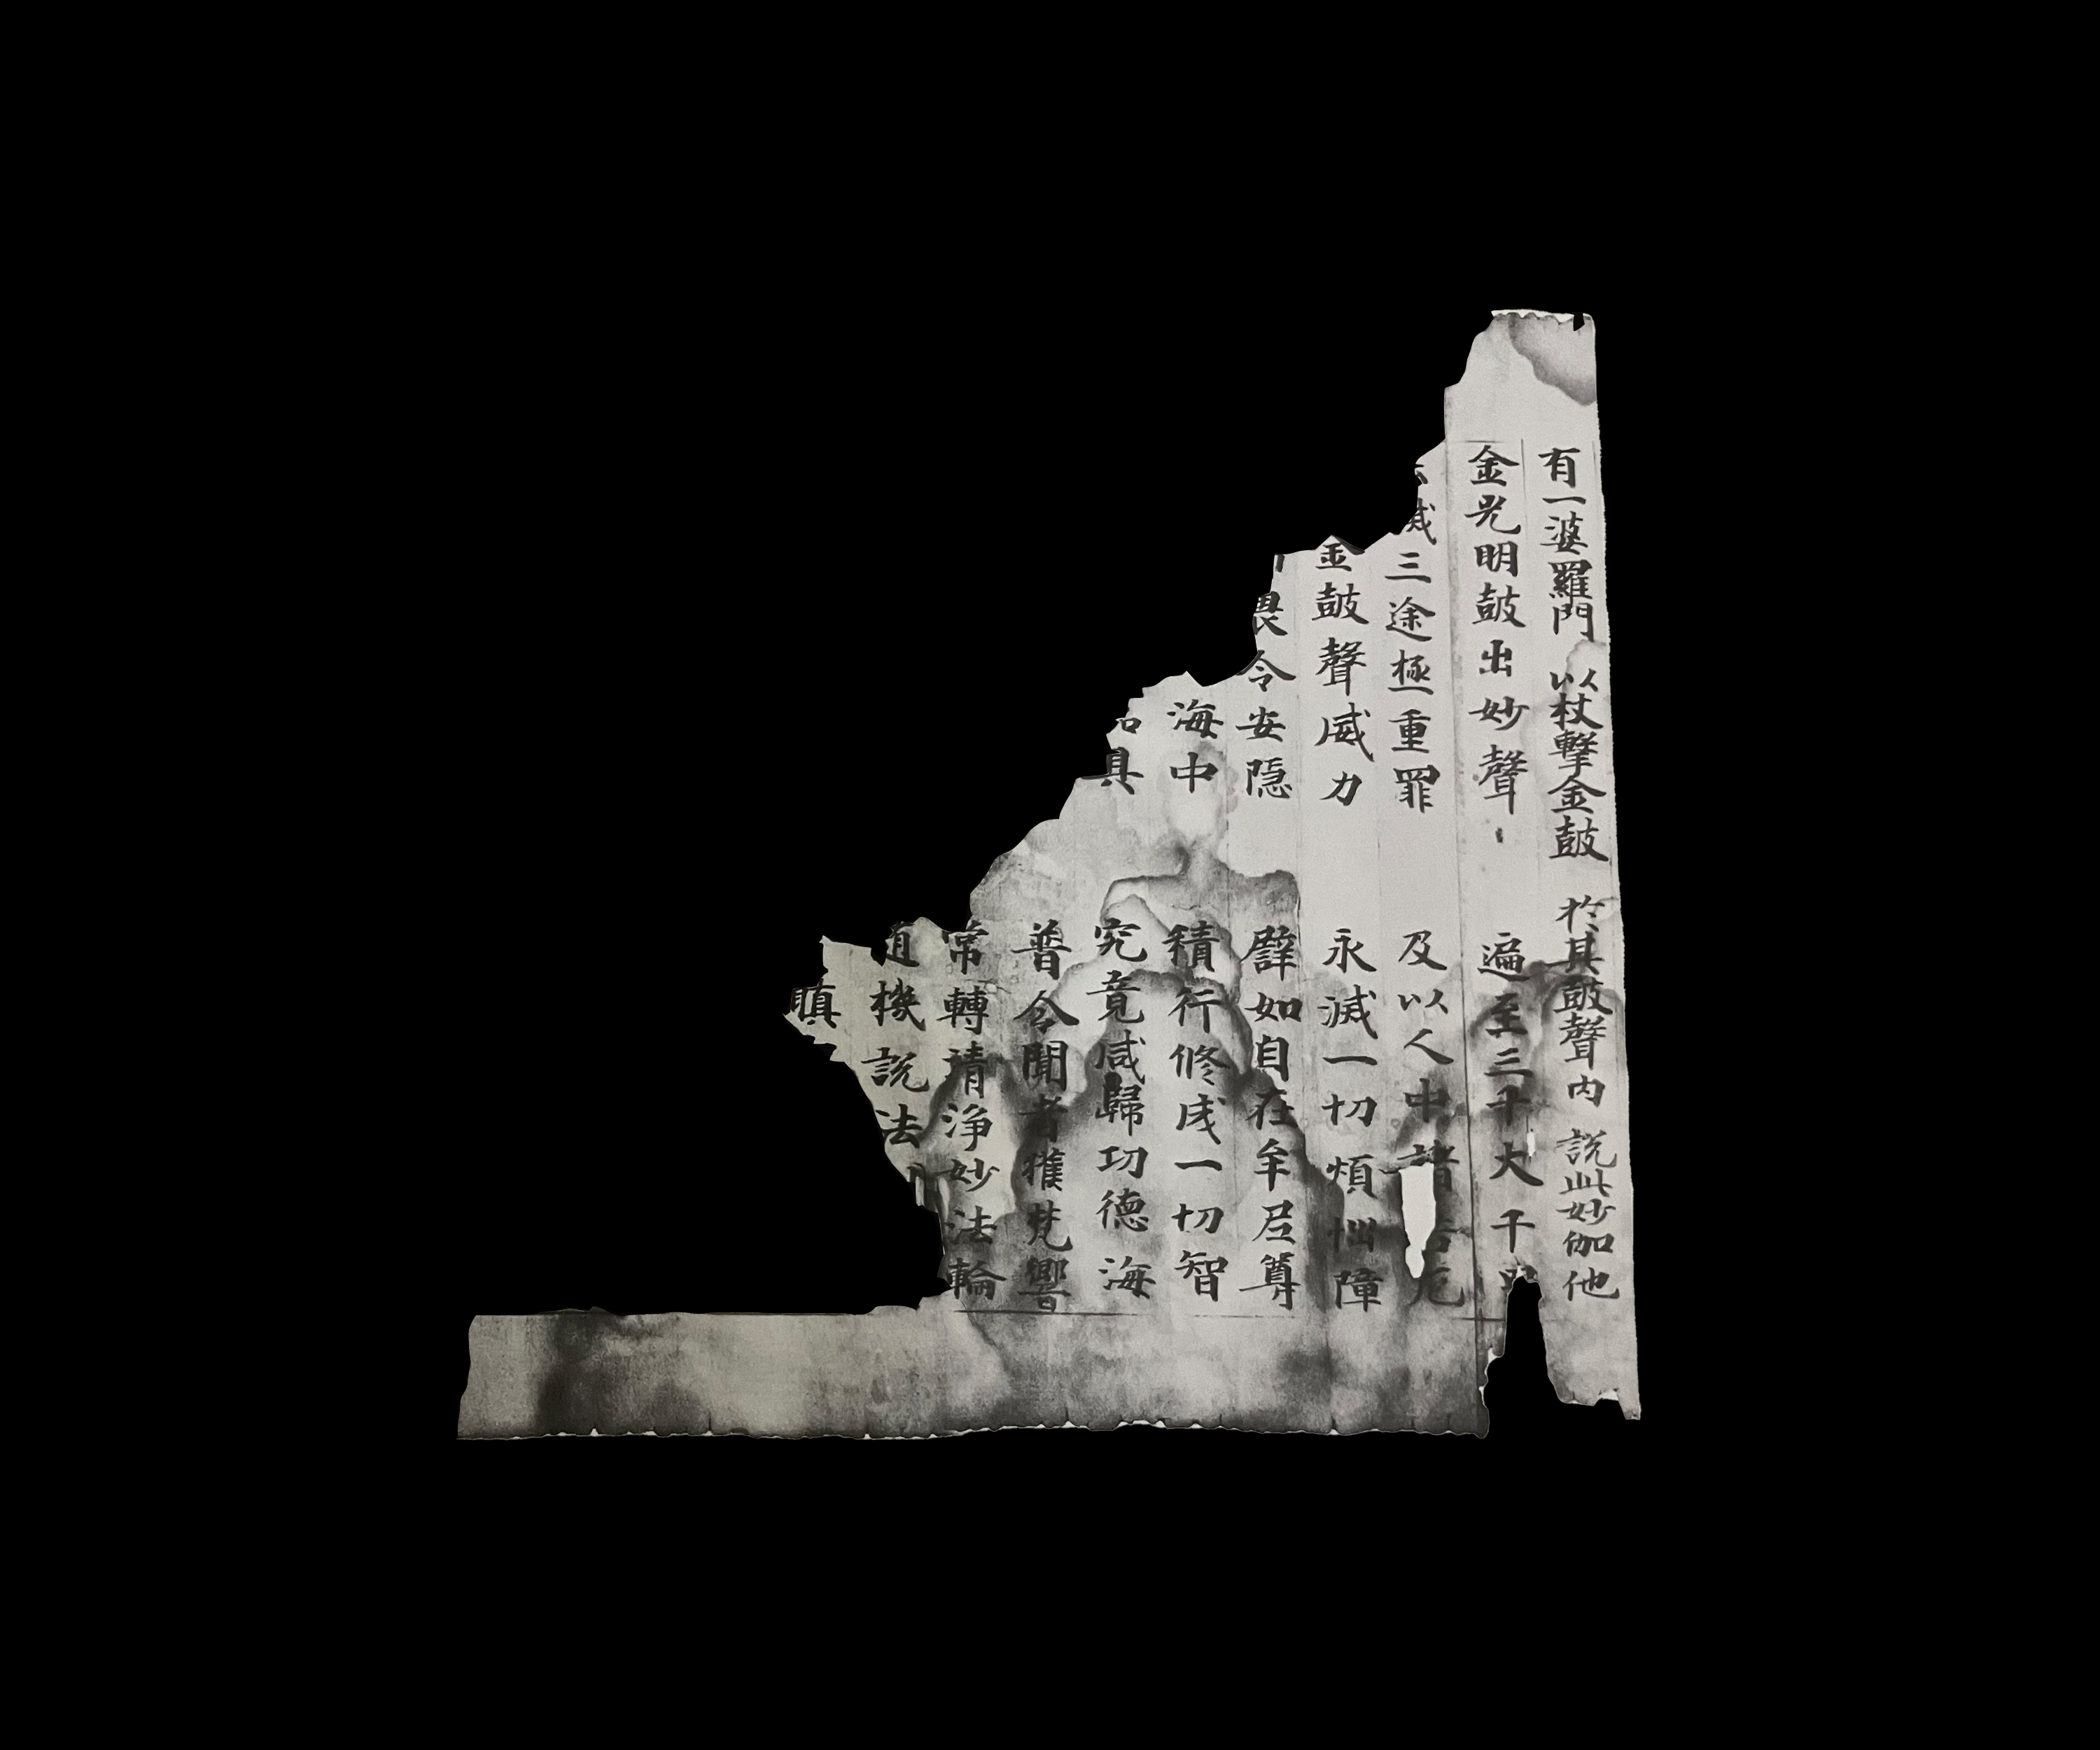 有一婆羅門 以杖擊金鼓 於其鼓聲內 說此妙伽他
金光明鼓出妙聲 遍至三千大千
滅三途極重罪 及以人中諸苦厄
金鼓聲威力 永滅一切煩惱障
畏令安隱 譬如自在牟尼尊
海中 積行修成一切智
具 究竟咸歸功德海
普令聞者獲梵響
常轉清淨妙法輪
隨機說法
瞋